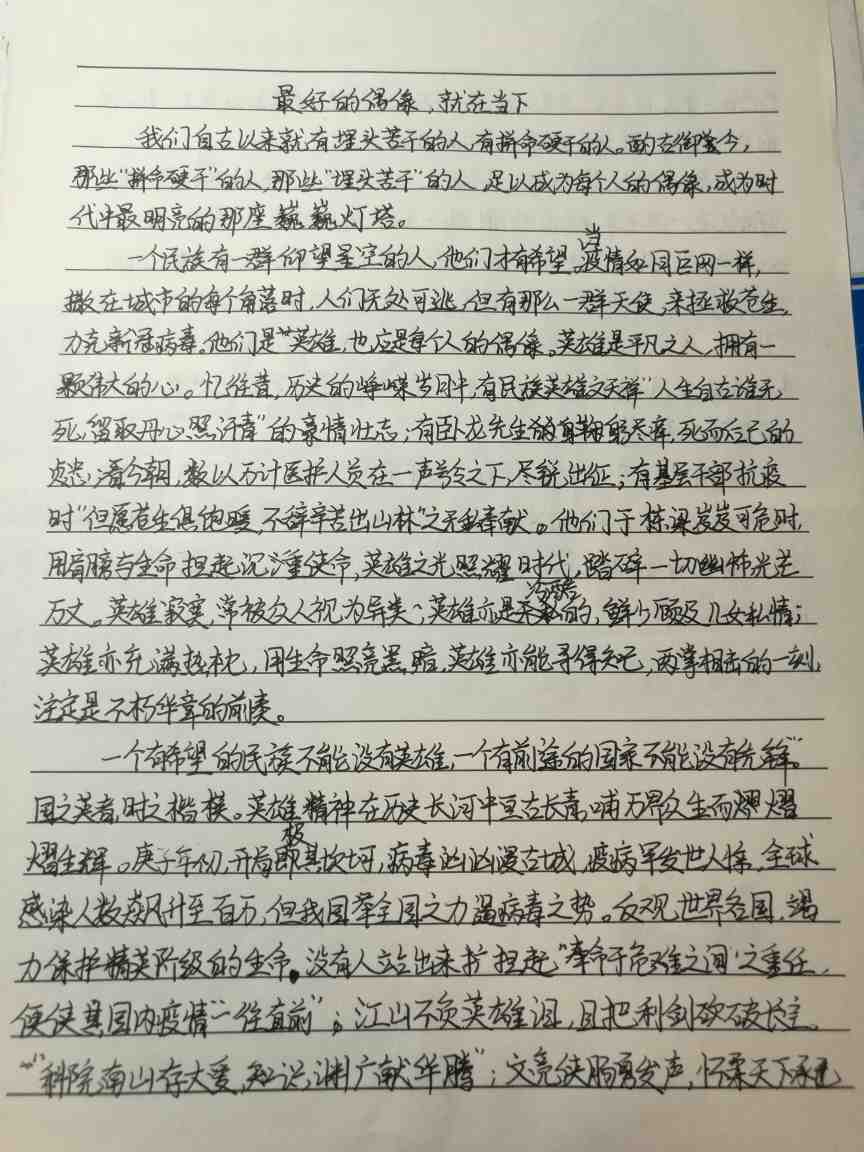 最好的偶像,就在当下
我们自古以来就有埋头苦干的人,有拼命硬干的人。酌古御今,
那些"拼命硬干"的人,那些"埋头苦干"的人,足以成为每个人的偶像,成为时
代中最明亮的那座巍巍灯塔。
一个民族有一群仰望星空的人,他们才有希望。当疫情如同巨网一样,
撒在城市的每个角落时,人们无处可逃,但有那么一群天使,来拯救苍生,
力克新冠病毒。他们是"英雄,也应是每个人的偶像。英雄是平凡之人,拥有一
颗伟大的心。忆往昔,历史的峥嵘岁月中,有民族英雄文天祥"人生自古谁无
死,留取丹心照汗青"的豪情壮志;有卧龙先生的鞠躬尽瘁,死而后已的
忠;看今朝,数以万计医护人员在一声号令之下,尽锐出征;有基层干部抗疫
时"但愿苍生俱饱暖,不辞辛苦出山林"之无私奉献。他们于栋梁岌岌可危时,
用肩膀与生命担起沉重使命,英雄之光照耀时代,踏碎一切幽怖光芒
万丈。英雄寂寞,常被众人视为异类、英雄亦是冷酷的,鲜少顾及儿女私情;
英雄亦充满热忱,用生命照亮黑暗,英雄亦能寻得知己,两掌相击的一刻,
注定是不朽华章的前奏。
一个有希望的民族不能没有英雄,一个有前途的国家不能没有先锋"。
国之英者,时之楷模。英雄精神在历史长河中亘古长青,哺万界众生而熠熠
熠生辉。庚子年初,开局即极其坎坷,病毒汹汹漫古城,疫病罕发世人惊,全球
感染人数飙升至百万,但我国举全国之力遏病毒之势。反观世界各国,竭
力保护精英阶级的生命。没有人站出来扩担起"奉命于危难之间"之重任,
便使其国内疫情"一往直前";江山不负英雄泪,且把利剑砍破长空。
"科院南山存大爱,知识渊广献华腾";文亮侠胸勇发声,怀柔天下承